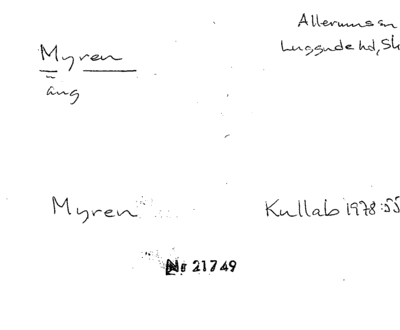 Allerums sn
Luggude hd, Sk
Myren
äng
Myren
Kullab 1978:55
Nr 21749